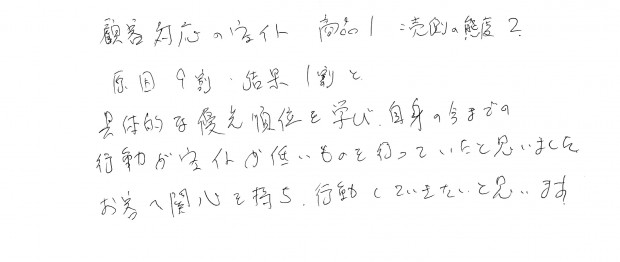 顧客対応のウェイト 商品1 :売側の態度2
原因9割・結果1割と
具体的な優先順位を学び、自身の今までの
行動がウェイトが低いものを行っていたと思いました
お客へ関心を持ち、行動していきたいと思います